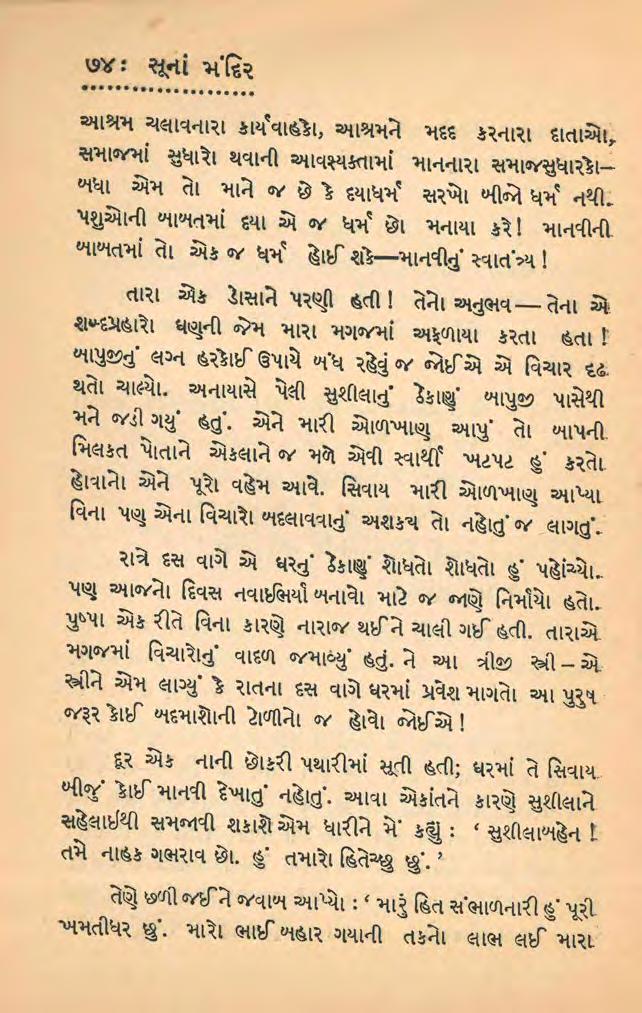 ૭૪ : સૂનાં મંદિર
આશ્રમ ચલાવનારા કાર્યવાહકો, આશ્રમને મદદ કરનારા દાતાઓ,
સમાજમાં સુધારો થવાની આવશ્યક્તામાં માનનારા સમાજસુધારકો—
બધા એમ તો માને જ છે કે દયાધર્મ સરખો બીજો ધર્મ નથી.
પશુઓની બાબતમાં દયા એ જ ધર્મ છો મનાયા કરે! માનવીની
બાબતમાં તો એક જ ધર્મ હોઈ શકે—માનવીનું સ્વાતંત્ર્ય!
તારા એક ડોસાને પરણી હતી! તેનો અનુભવ — તેના એ
શબ્દપ્રહારો ઘણની જેમ મારા મગજમાં અફળાયા કરતા હતા!
બાપુજીનું લગ્ન હરકોઈ ઉપાયે બંધ રહેવું જ જોઈએ એ વિચાર દૃઢ
થતો ચાલ્યો. અનાયાસે પેલી સુશીલાનું ઠેકાણું બાપુજી પાસેથી
મને જડી ગયું હતું. એને મારી ઓળખાણ આપું તો બાપની
મિલકત પોતાને એકલાને જ મળે એવી સ્વાર્થી ખટપટ હું કરતો
હોવાનો એને પૂરો વહેમ આવે. સિવાય મારી ઓળખાણ આપ્યા
વિના પણ એના વિચારો બદલાવવાનું અશક્ય તો નહોતું જ લાગતું.
રાત્રે દસ વાગે એ ઘરનું ઠેકાણું શોધતો શોધતો હું પહોંચ્યો.
પણ આજનો દિવસ નવાઈભર્યો બનાવો માટે જ જાણે નિર્માયો હતો.
પુષ્પા એક રીતે વિના કારણે નારાજ થઈને ચાલી ગઈ હતી. તારાએ
મગજમાં વિચારોનું વાદળ જમાવ્યું હતું. ને આ ત્રીજી સ્ત્રી – એ
સ્ત્રીને એમ લાગ્યું કે રાતના દસ વાગે ઘરમાં પ્રવેશ માગતો આ પુરુષ
જરૂર કોઈ બદમાશોની ટોળીનો જ હોવો જોઈએ!
દૂર એક નાની છોકરી પથારીમાં સૂતી હતી; ઘરમાં તે સિવાય
બીજું કોઈ માનવી દેખાતું નહોતું. આવા એકાંતને કારણે સુશીલાને
સહેલાઈથી સમજાવી શકાશે એમ ધારીને મેં કહ્યું : ‘ સુશીલાબહેન !
તમે નાહક ગભરાવ છો. હું તમારો હિતેચ્છુ છું. ’
તેણે છળી જઈને જવાબ આપ્યો : ‘ મારું હિત સંભાળનારી હું પૂરી
ખમતીધર છું. મારો ભાઈ બહાર ગયાની તકનો લાભ લઈ મારા